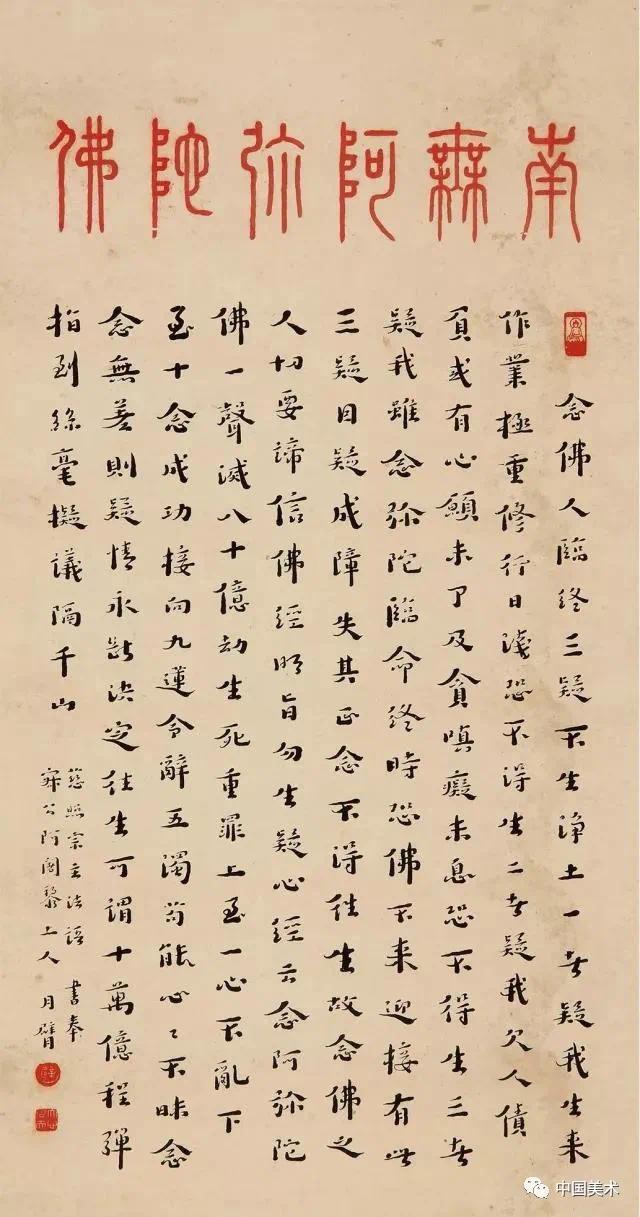 南無阿弥陀佛
念佛人臨終三疑不生淨土一者疑我生来
作業極重修行日淺恐不得生二者疑我欠人債
負或有心願未了及貪嗔癡未息恐不得生三者
疑我雖念弥陀臨命終時恐佛不来迎接有此
三疑因疑成障失其正念不得往生故念佛之
人切要諦信佛經明旨勿生疑心經云念阿弥陀
佛一聲滅八十億劫生死重罪上至一心不亂下
至十念成功接向九蓮令辭五濁苟能心〻不昧念
念無差則疑情永斷決定往生可謂十萬億程彈
指到絲毫擬議隔千山
慈照宗主法語 書奉
寂公阿闍黎上人 月臂
中国美术